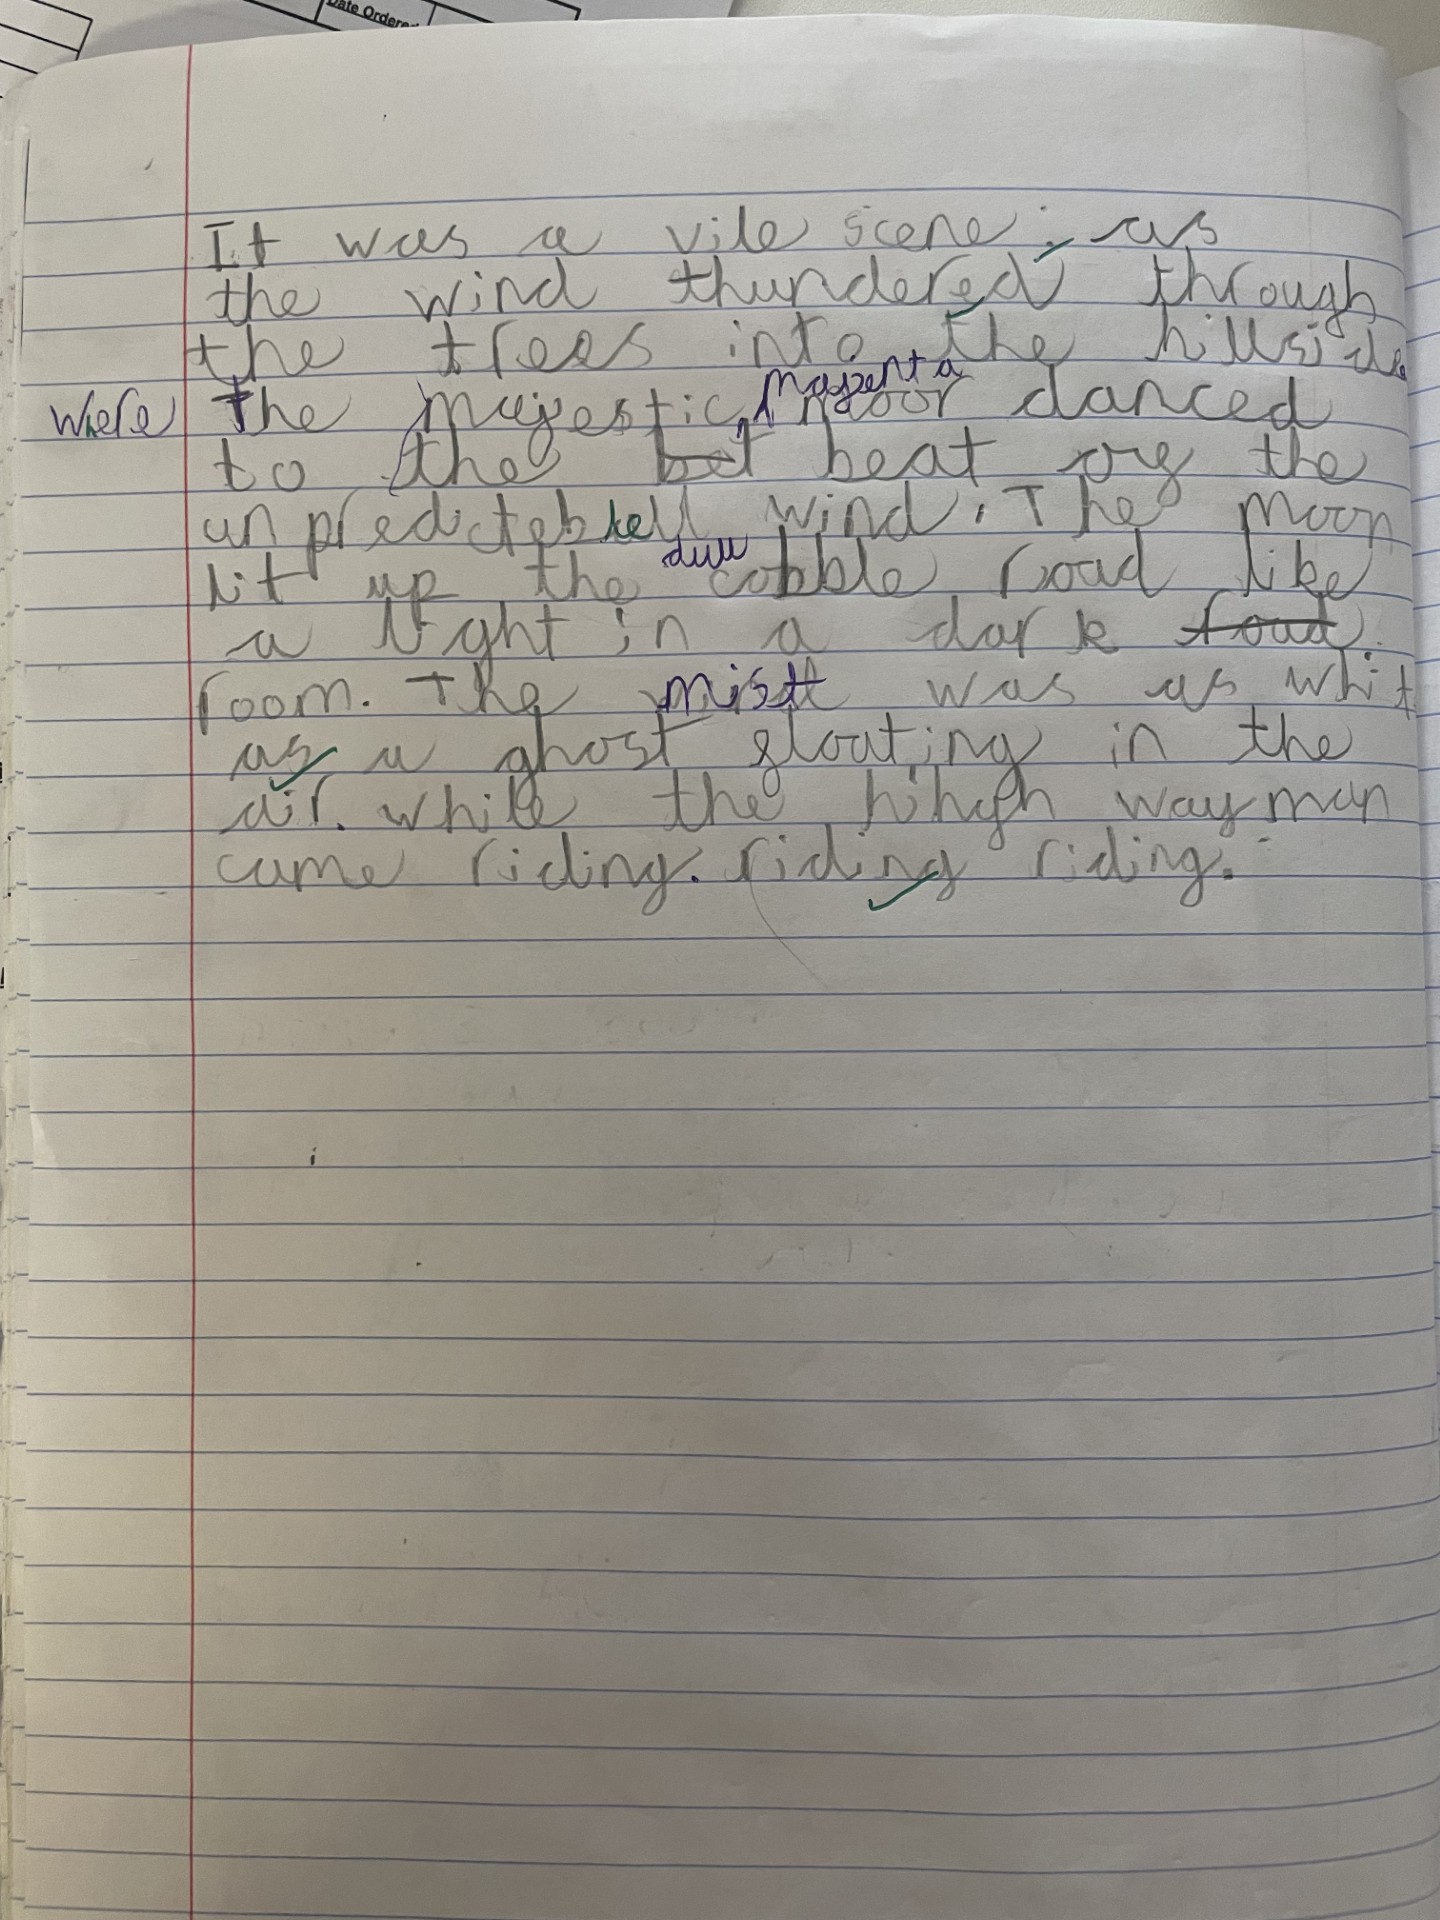 Date Ordered
It was a vile scene; as
the wind thundered through
the trees into the hillside
where the majestic, magenta moor danced
to the bet beat og the
unpredictebell wind. The moon
lit up the dull cobble road like
a light in a dark road
room. The mist was as whit
as a ghost gloating in the
air. while the hihgh wayman
came riding. riding riding.